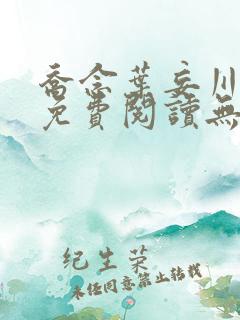 喬念葉妄川
免費閱讀無
纪生荣
未经同意禁止转载